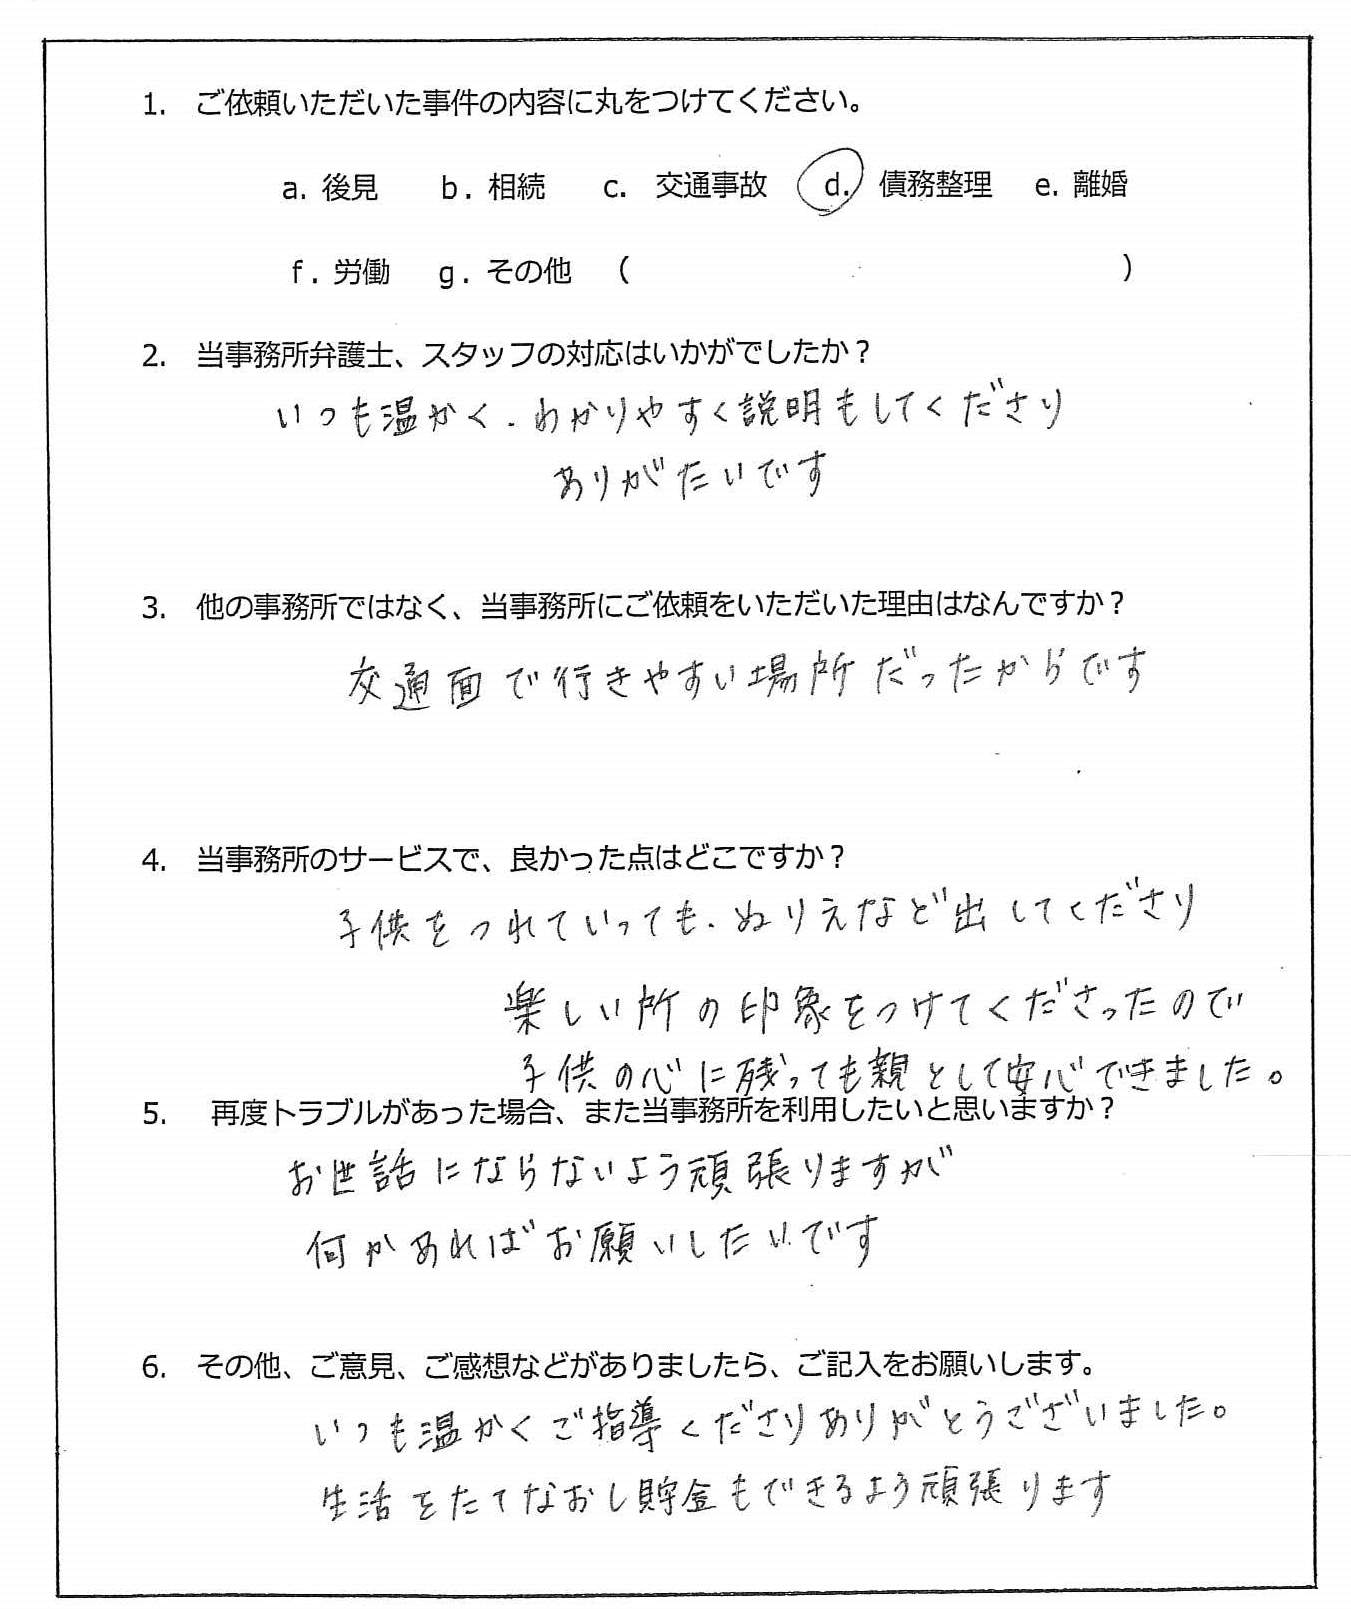 1. ご依頼いただいた事件の内容に丸をつけてください。
a. 後見 b. 相続 c. 交通事故 d. 債務整理 e. 離婚
f. 労働 g. その他 ( )
2. 当事務所弁護士、スタッフの対応はいかがでしたか？
いつも温かく、わかりやすく説明もしてくださり
ありがたいです
3. 他の事務所ではなく、当事務所にご依頼をいただいた理由はなんですか？
交通面で行きやすい場所だったからです
4. 当事務所のサービスで、良かった点はどこですか？
子供をつれていっても、ぬりえなど出してくださり
楽しい所の印象をつけてくださったので
子供の心に残っても親として安心できました。
5. 再度トラブルがあった場合、また当事務所を利用したいと思いますか？
お世話にならないよう頑張りますが
何かあればお願いしたいです
6. その他、ご意見、ご感想などがありましたら、ご記入をお願いします。
いつも温かくご指導くださりありがとうございました。
生活をたてなおし貯金もできるよう頑張ります